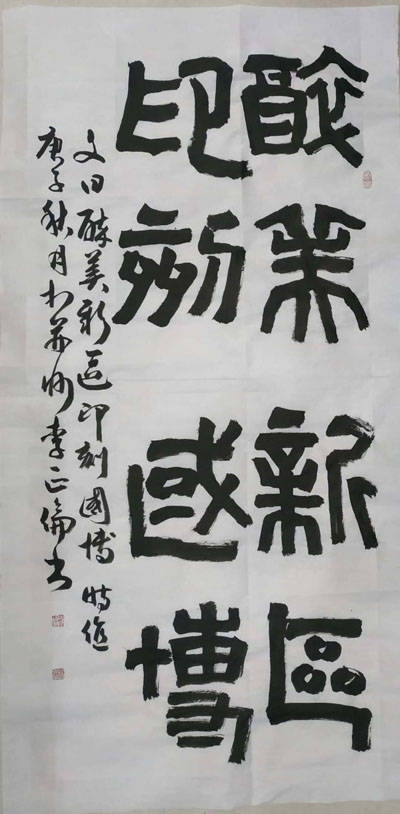 醉美新區
印刻國博
文曰醉美新區印刻國博 時值
庚子秋月於蘇州李正倫書